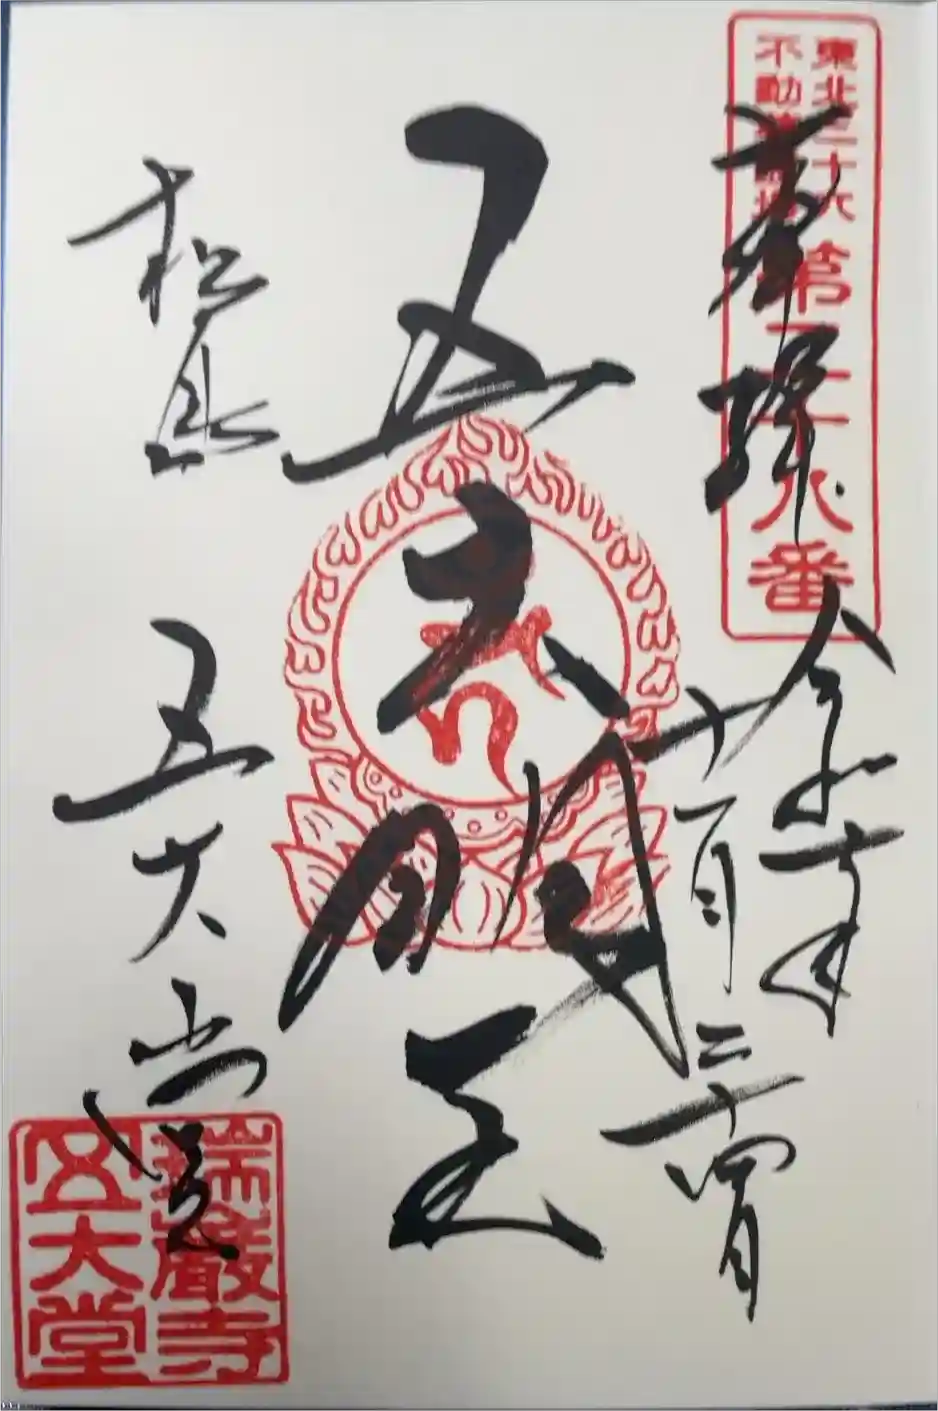 東北三十六
不動尊霊場
第二十八番
奉拝
令和年
十一月二十四日
五大明王
松島
五大堂
瑞巖寺
五大堂